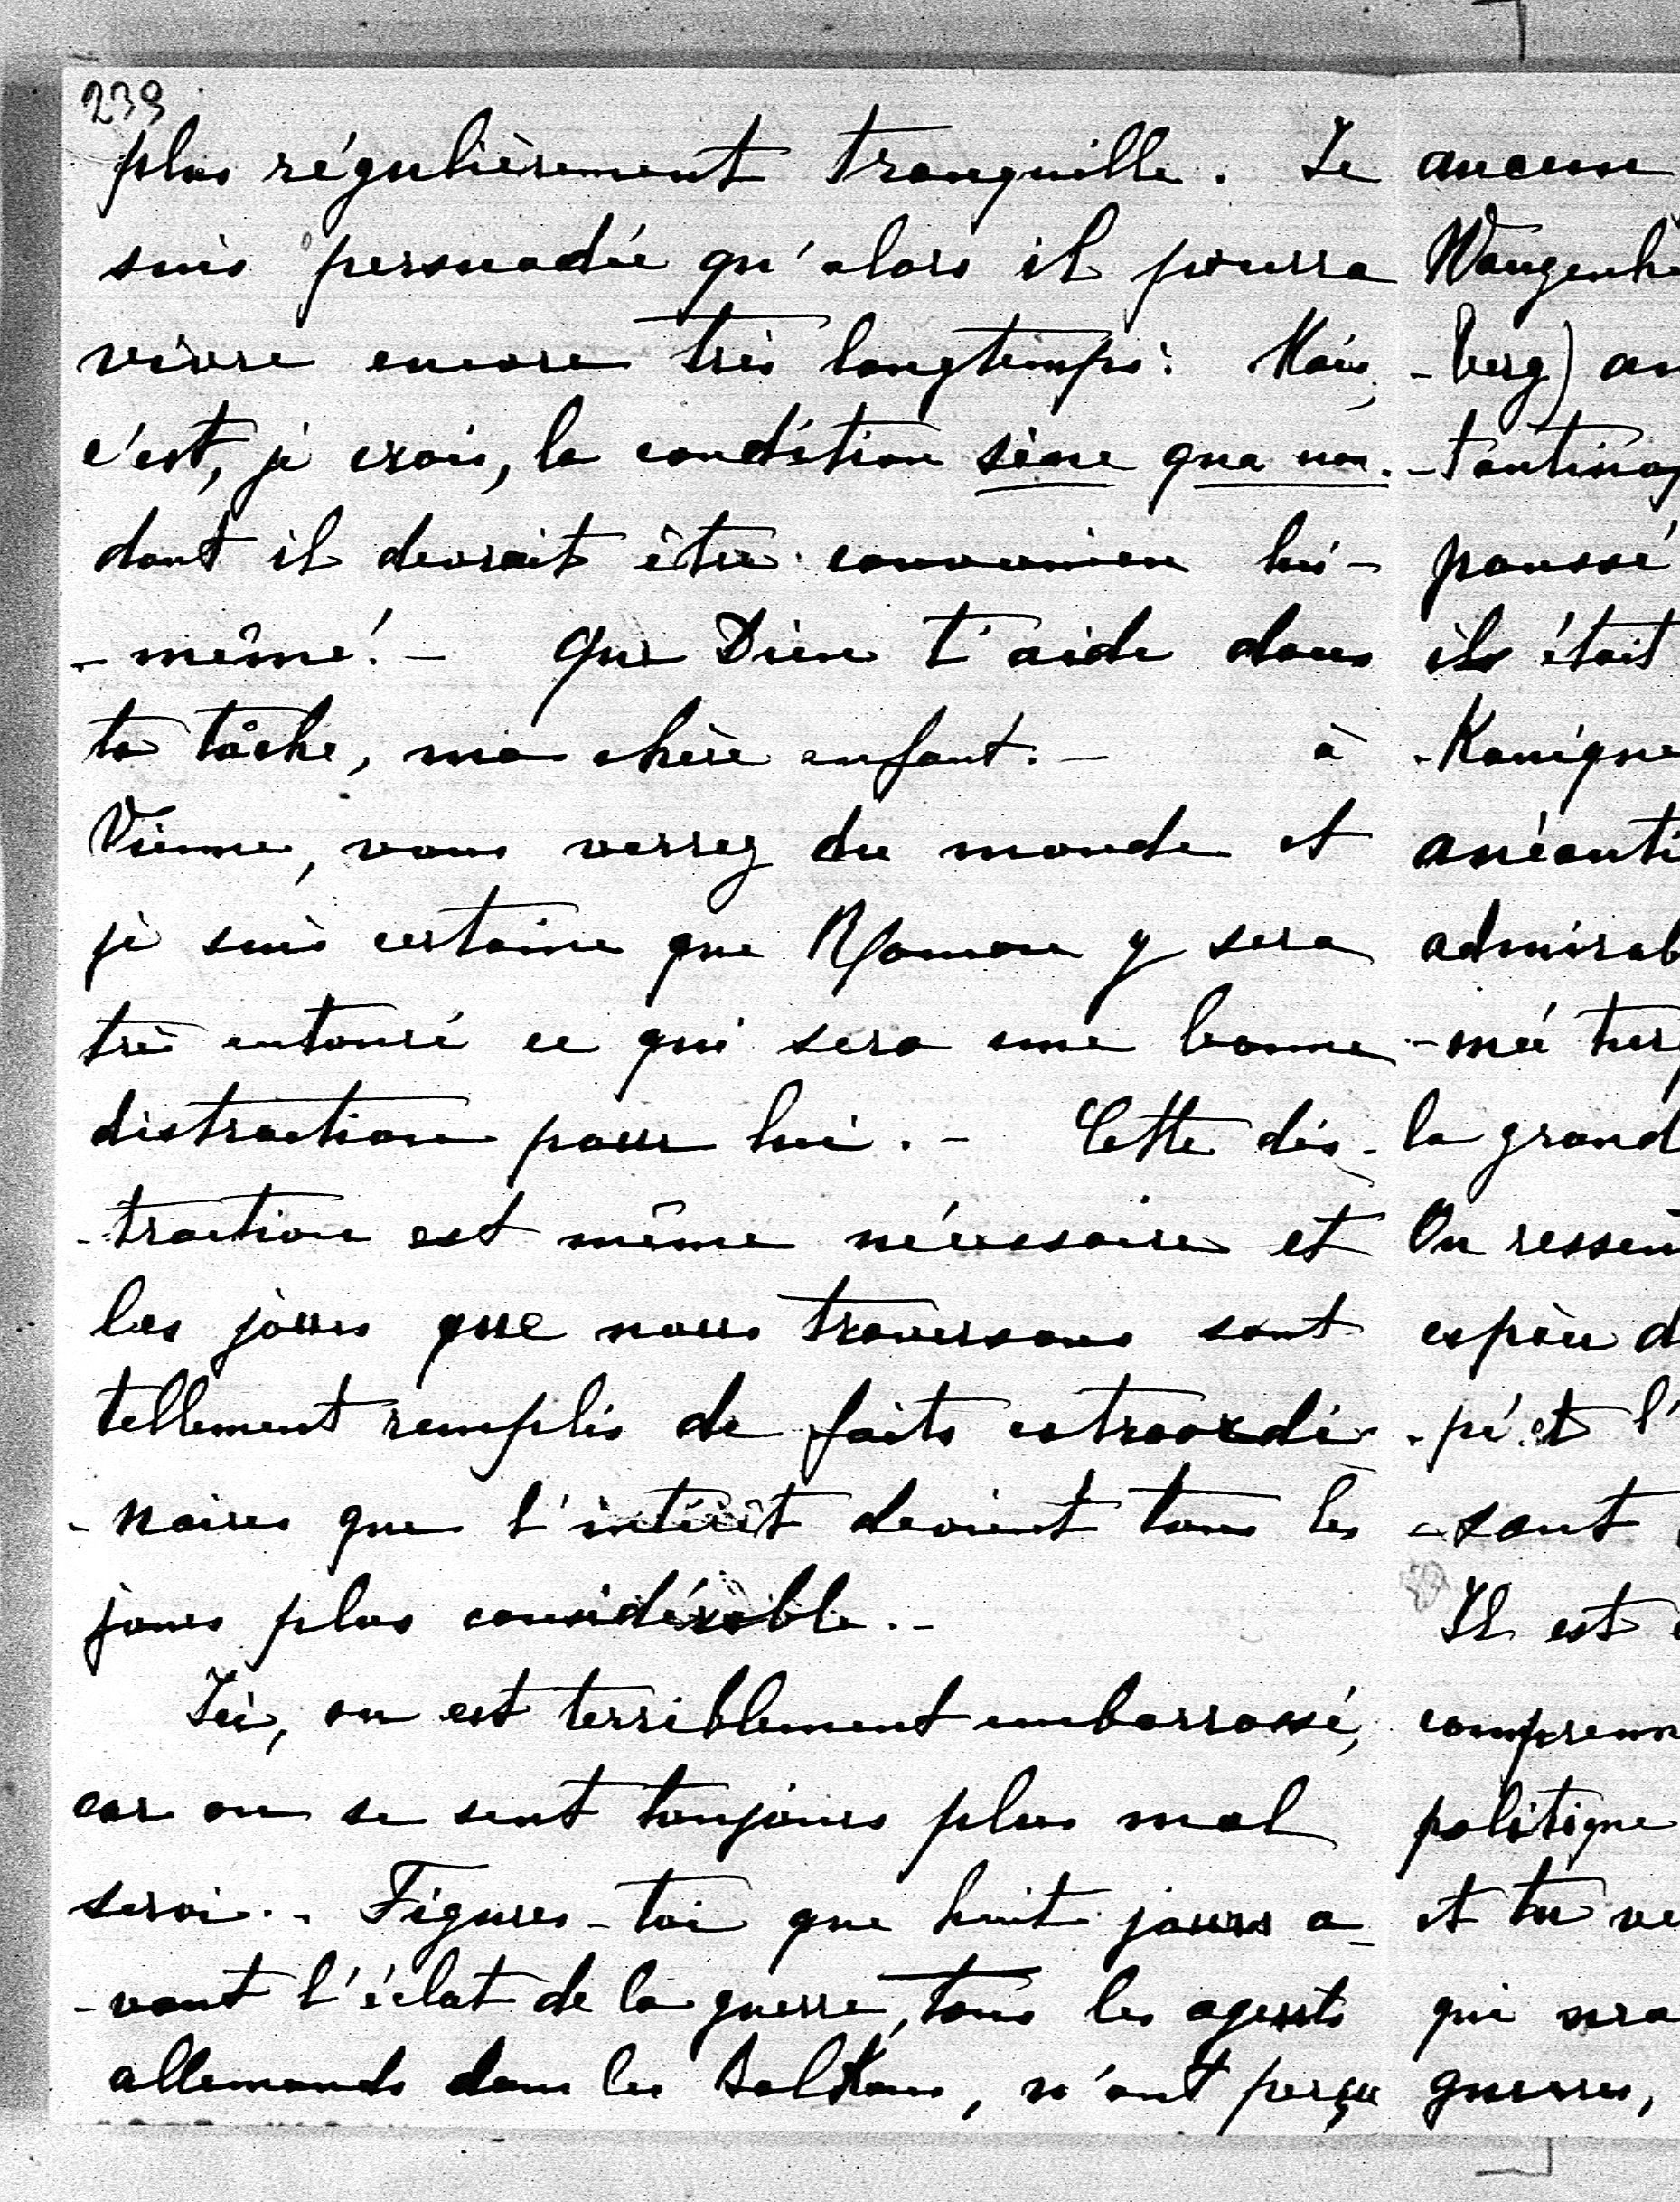 239
plus régulièrement tranquille. Je
suis persuadée qu'alors il pourra
vivre encore très longtemps: Mais,
c'est, je crois, la condition sine qua non.
dont il devrait être convaincu lui-
-même! - Que Dieu t'aide dans
ta tâche, ma chère enfant. - à
Vienne, vous verrez du monde et
je suis certaine que Maman y sera
très entouré ce qui sera une bonne
distraction pour lui. - Cette dis-
-traction est même nécessaire et
les jours que nous traversons sont
tellement remplis de faits extraordi-
-naires que l'intérêt devient tous les
jours plus considérable. -
Ici, on est terriblement embarrassé,
car on se sent toujours plus mal
servi. - Figures-toi que huit jours a-
-vant l'éclat de la guerre, tous les agents
allemands dans les Balkans, n'ont perçu
aucun
Wangenhe
-berg) an
-tantinop
poussé
ils était
-Kanigne
anéanti
admirab
-mée tur
la grand
On ressen
espèce d
-pé et l'
-sant
Il est
comprenn
politique
et tu ve
qui sera
guerres,